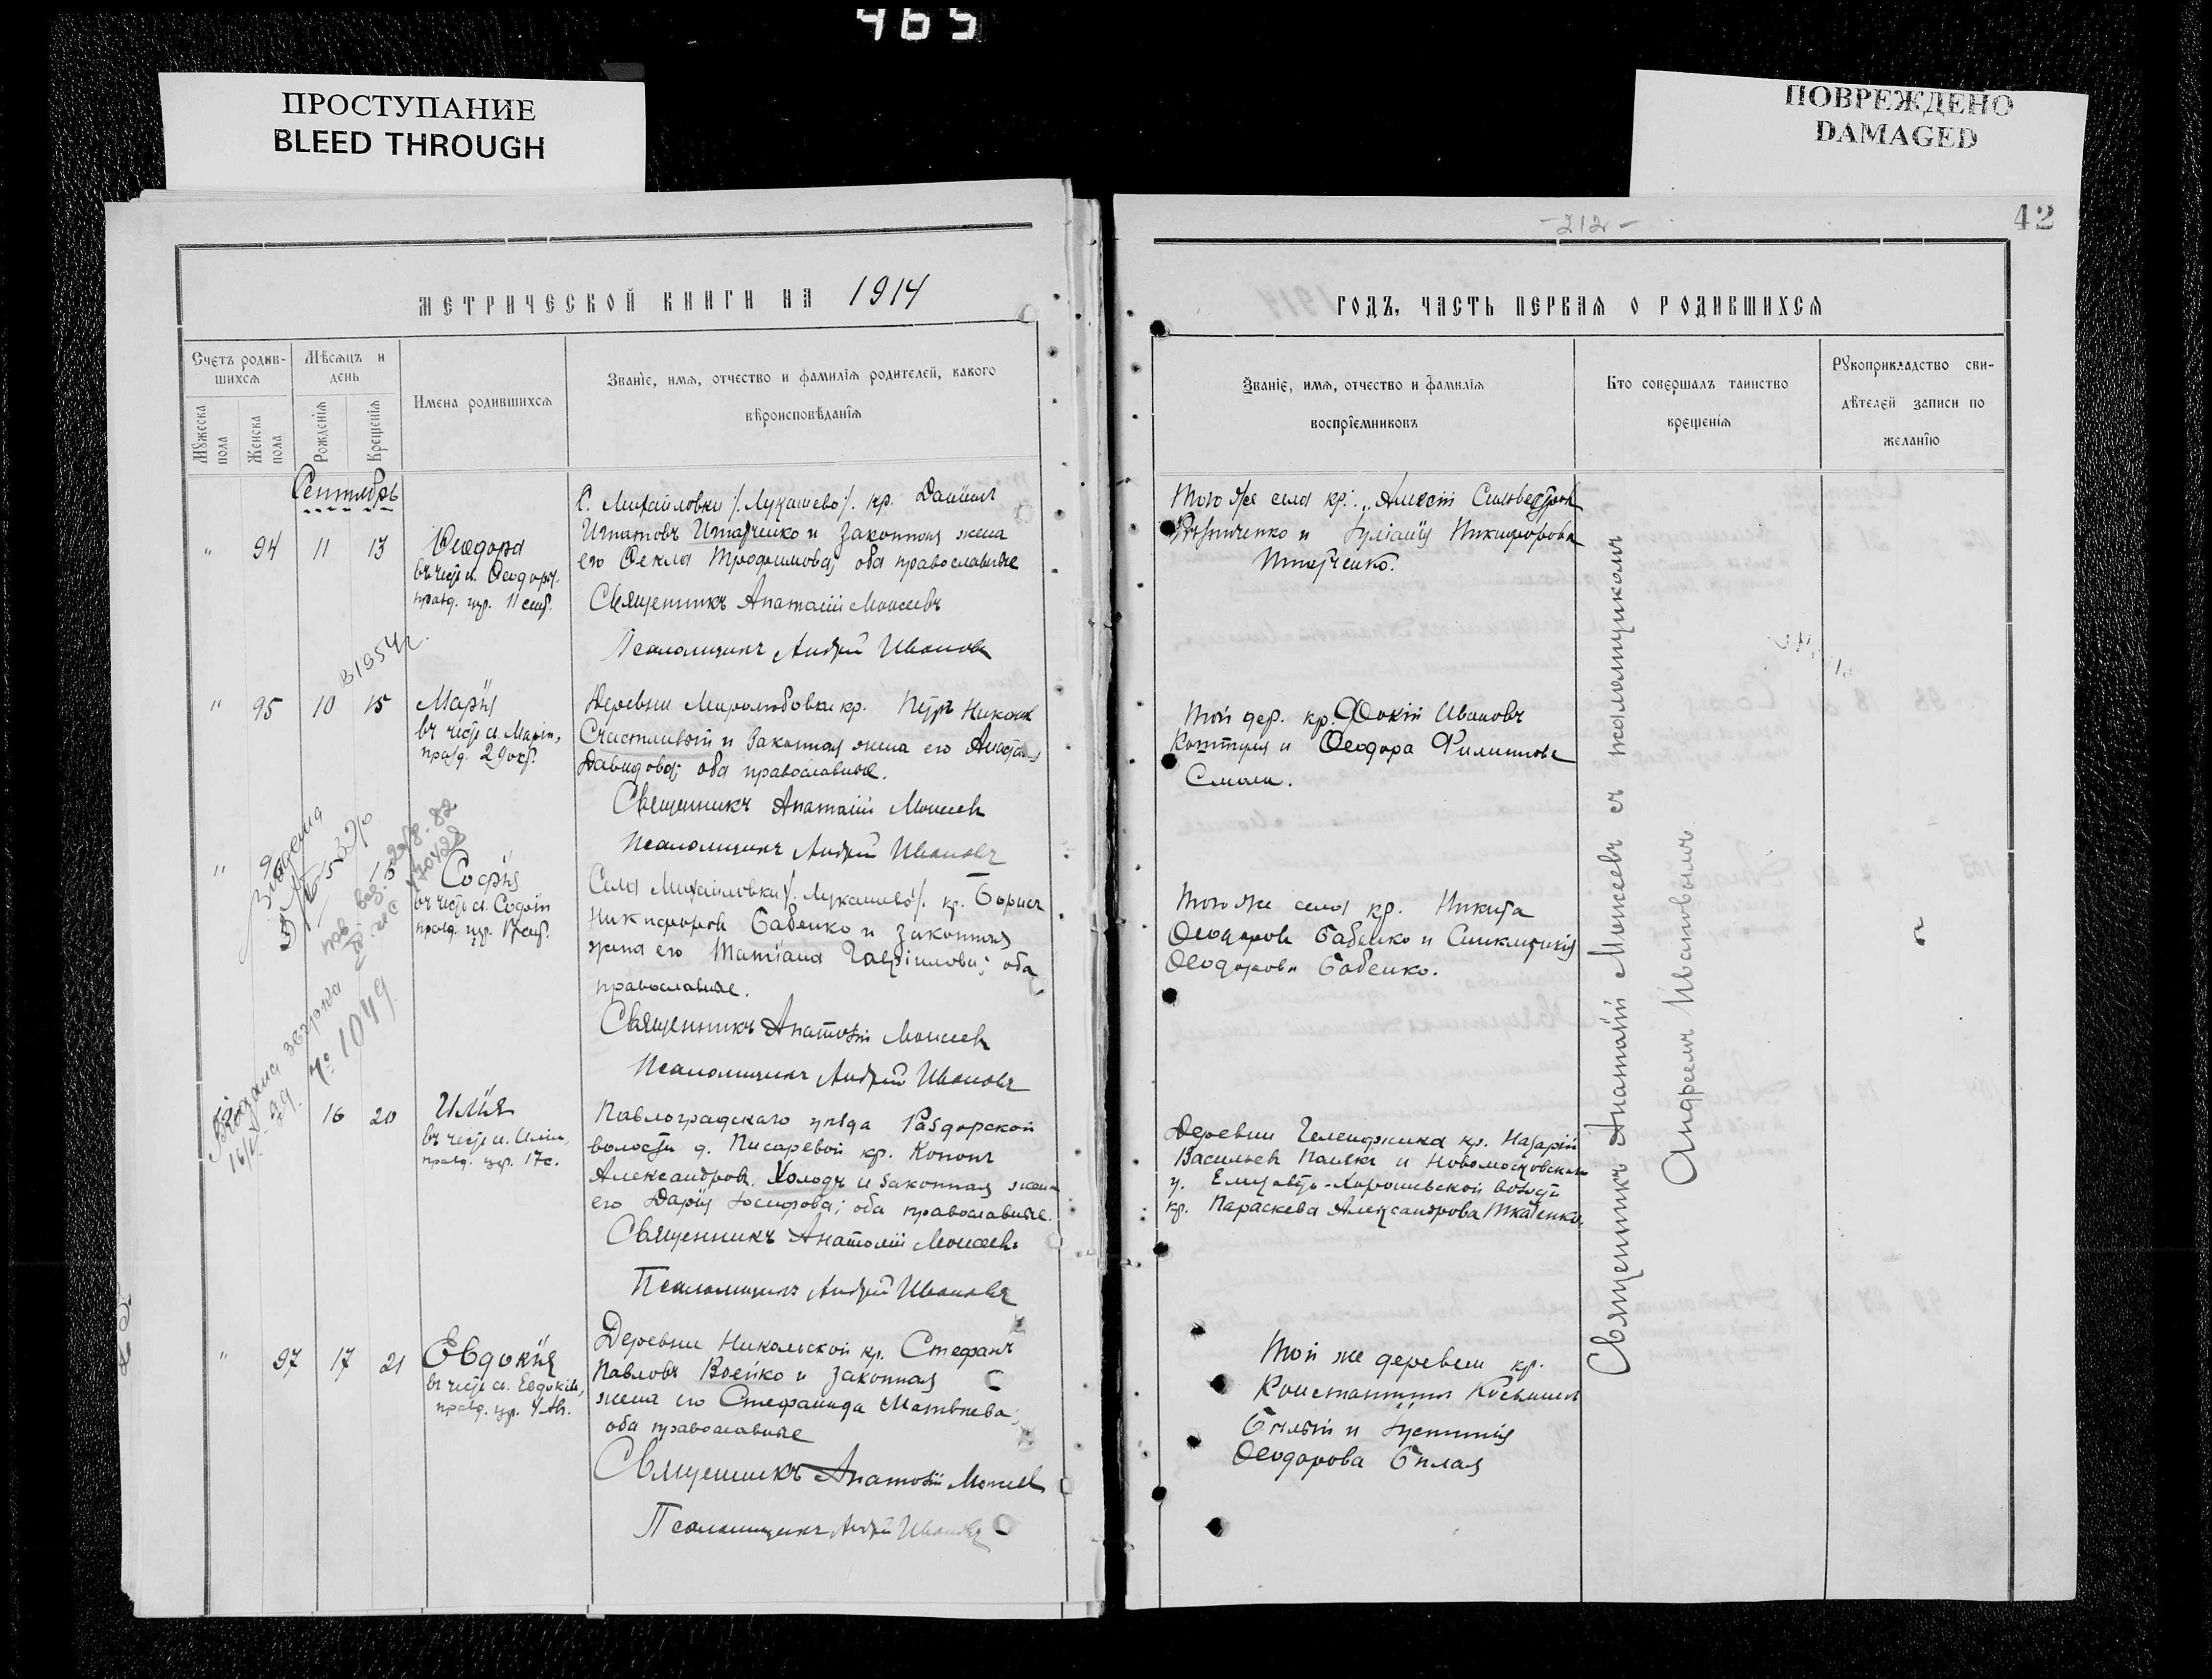 465
ПРОСТУПАНИЕ
BLEED THROUGH
ПОВРЕЖДЕНО
DAMAGED
42
-212-
МЕТРИЧЕСКОЙ КНИГИ НА 1914
Счетъ родив-
шихся
Мѣсяцъ и
день
Имена родившихся
Званіе, имя, отчество и фамилія родителей, какого
вѣроисповѣданія
Мужеска
пола
Женска
пола
Рожденія
Крещенія
Сентябрь
" 94 11 13
Ѳеодора
въ честь св. Ѳеодоры,
празд. цр. 11 сент.
С. Михайловки /Лукашево/. кр. Даніилъ
Игнатовъ и законная жена
его Ѳекла Трофимова; оба православные
Священникъ Анатолій Моисеевъ
Псаломщикъ Андрей Ивановъ
В 1954 г.
" 95 10 15
Марія
въ честь св. Маріи,
празд. 29 окт.
Деревни Миролюбовки кр. Петръ
Счастливый и законная жена его
Давидова; оба православные.
Священникъ Анатолій Моисеевъ
Псаломщикъ Андрей Ивановъ
" 96 16
Софія
въ честь св. Софіи
празд. цр. 17 сент.
Села Михайловки /Лукашево/. кр. Борисъ
Никифоровъ Бабенко и законная
жена его Татіана Гавріилова; оба
православные.
Священникъ Анатолій Моисеевъ
Псаломщикъ Андрей Ивановъ
№ 1049
16 20
Илія
въ честь св. Иліи,
празд. цр. 17 с.
Павлоградскаго уѣзда Раздорской
волости д. Писаревой кр. Кононъ
Александровъ Холодъ и законная жена
его Дарія Іосифова; оба православные.
Священникъ Анатолій Моисеевъ
Псаломщикъ Андрей Ивановъ
" 97 17 21
Евдокія
въ честь св. Евдокіи,
празд. цр. 4 Авг.
Деревни Никольской кр. Стефанъ
Павловъ Воейко и законная
жена его Стефанида Матвѣева;
оба православные
Священникъ Анатолій Моисеевъ
Псаломщикъ Андрей Ивановъ
ГОДЪ, ЧАСТЬ ПЕРВАЯ О РОДИВШИХСЯ
Званіе, имя, отчество и фамилія
воспріемниковъ
Кто совершалъ таинство
крещенія
Рукоприкладство сви-
дѣтелей записи по
желанію
Того же села кр. Алексій Сильвестровъ
и Іуліанія Никифорова
Той дер. кр. Фокій Ивановъ
и Ѳеодора Филиппова
Того же села кр. Никита
Ѳеодоровъ Бабенко и Синклитикія
Ѳеодорова Бабенко.
Деревни Геленджика кр. Назарій
Васильевъ и Новомосковскаго
у. волости
кр. Параскева Александрова Ткаченко.
Той же деревни кр.
Константинъ
Бѣлый и Іустинія
Ѳеодорова Бѣлая
Священникъ Анатолій Моисеевъ съ псаломщикомъ
Андреемъ Ивановымъ